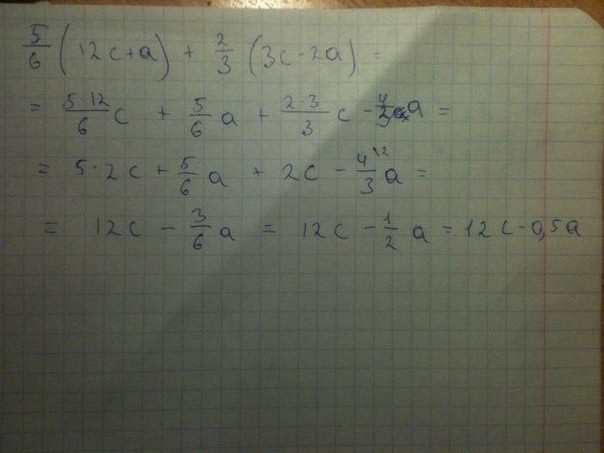 5/6 (12c+a) + 2/3 (3c-2a) =
= 5·12/6 c + 5/6 a + 2·3/3 c - 4/3 a =
= 5·2c + 5/6 a + 2c - 4\2/3 a =
= 12c - 3/6 a = 12c - 1/2 a = 12c - 0,5a